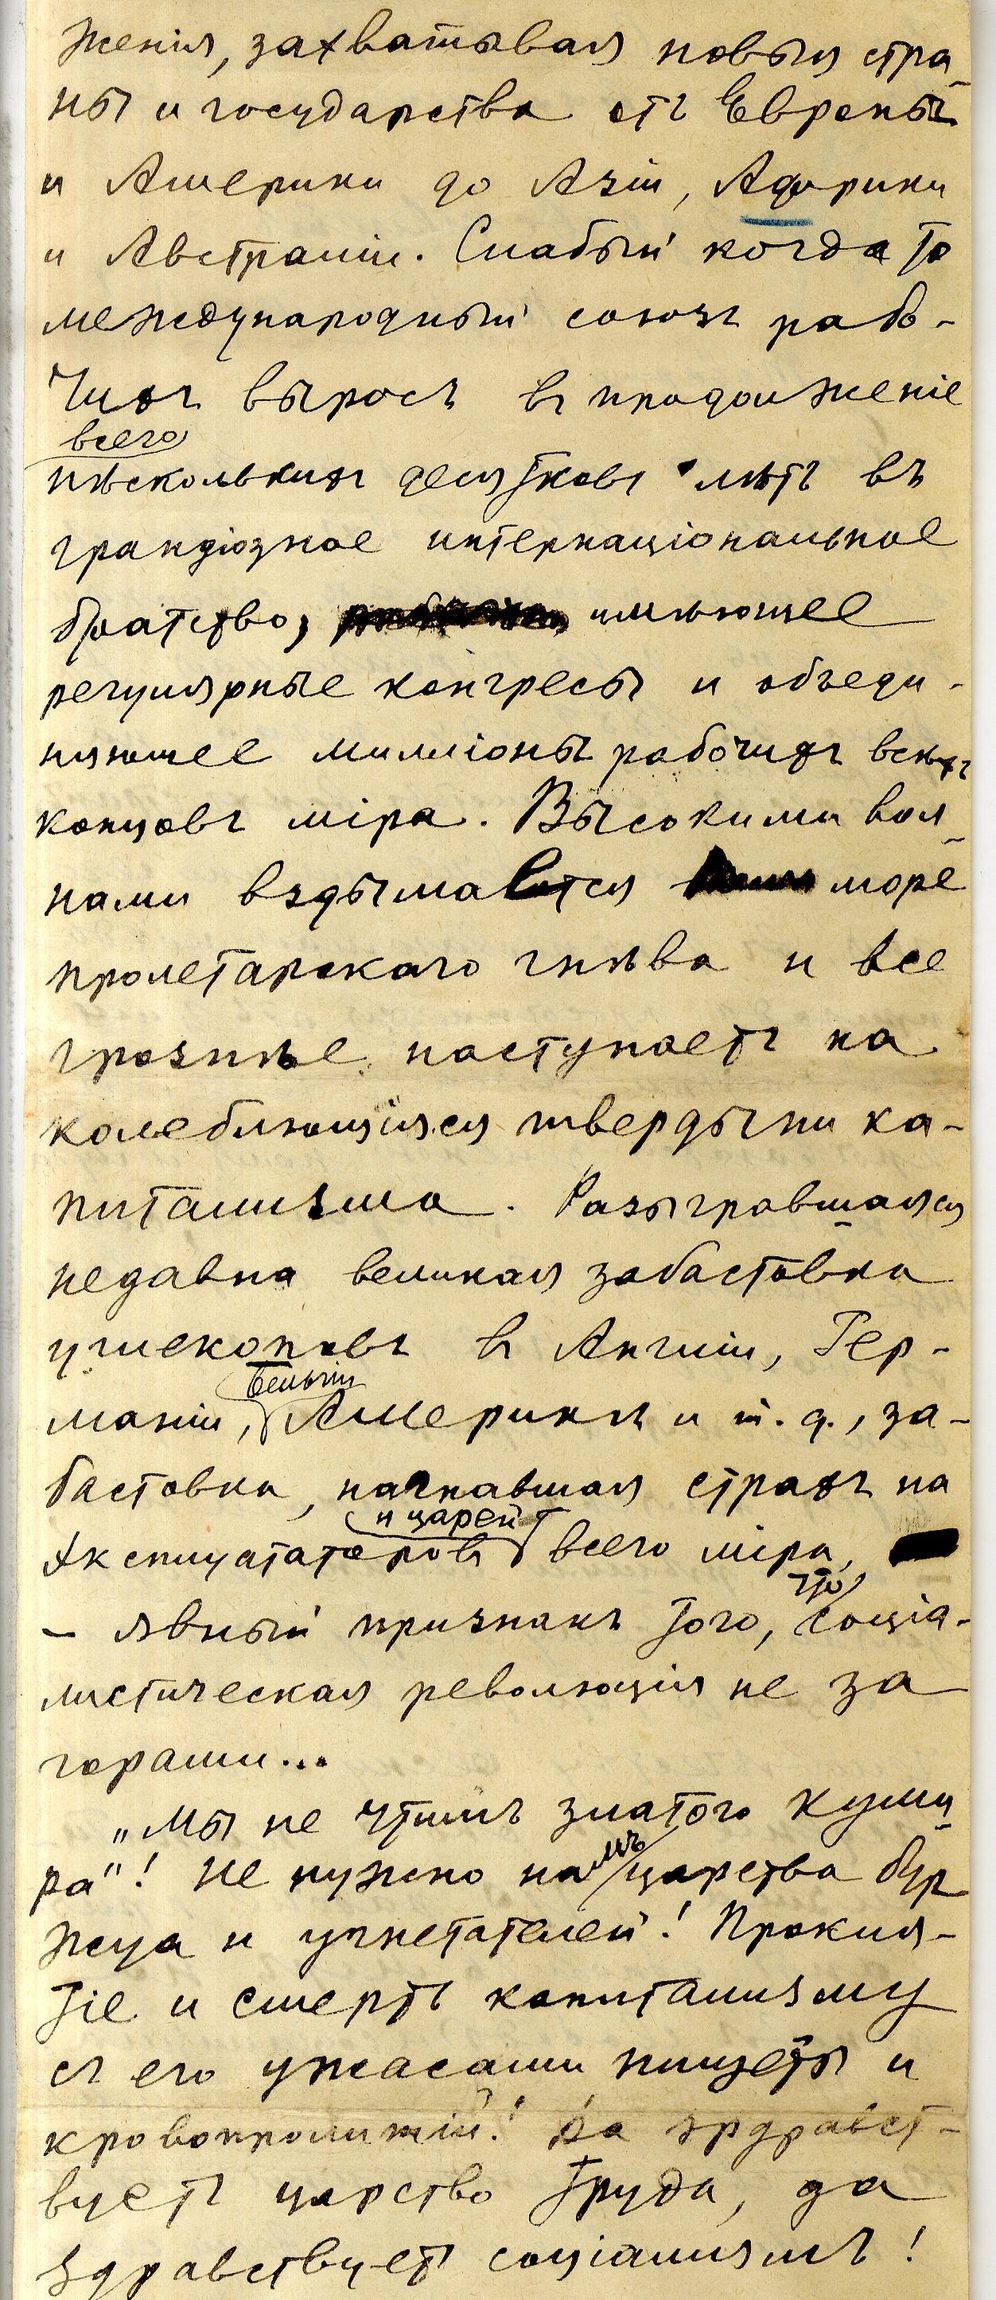 женія, захватывая новыя стра-
ны и государства отъ Европы
и Америки до Азіи, Африки
и Австраліи. Слабый когда то
международный союзъ рабо-
чихъ выросъ въ продолженіе
всего
нѣсколькихъ десятковъ лѣтъ въ
грандіозное интернаціональное
братство, имѣющее
регулярные конгресы и объеди-
няющее милліоны рабочихъ всѣхъ
концовъ міра. Высокими вол-
нами вздымается море
пролетарскаго гнѣва и все
грознѣе наступаетъ на
колеблющіяся твердыни ка-
питализма. Разыгравшаяся
недавно великая забастовка
углекоповъ въ Англіи, Гер-
Бельгіи
маніи, Америкѣ и т. д., за-
бастовка, нагнавшая страхъ на
и царей
эксплуататоровъ всего міра,
что
— явный признакъ того, соціа-
листическая революція не за
горами...
„Мы не чтимъ златого куми-
ра"! Не нужно намъ царства бур
жуа и угнетателей! Прокля-
тіе и смерть капитализму
съ его ужасами нищеты и
кровопролитій! Да здравст-
вуетъ царство труда, да
здравствуетъ соціализмъ!